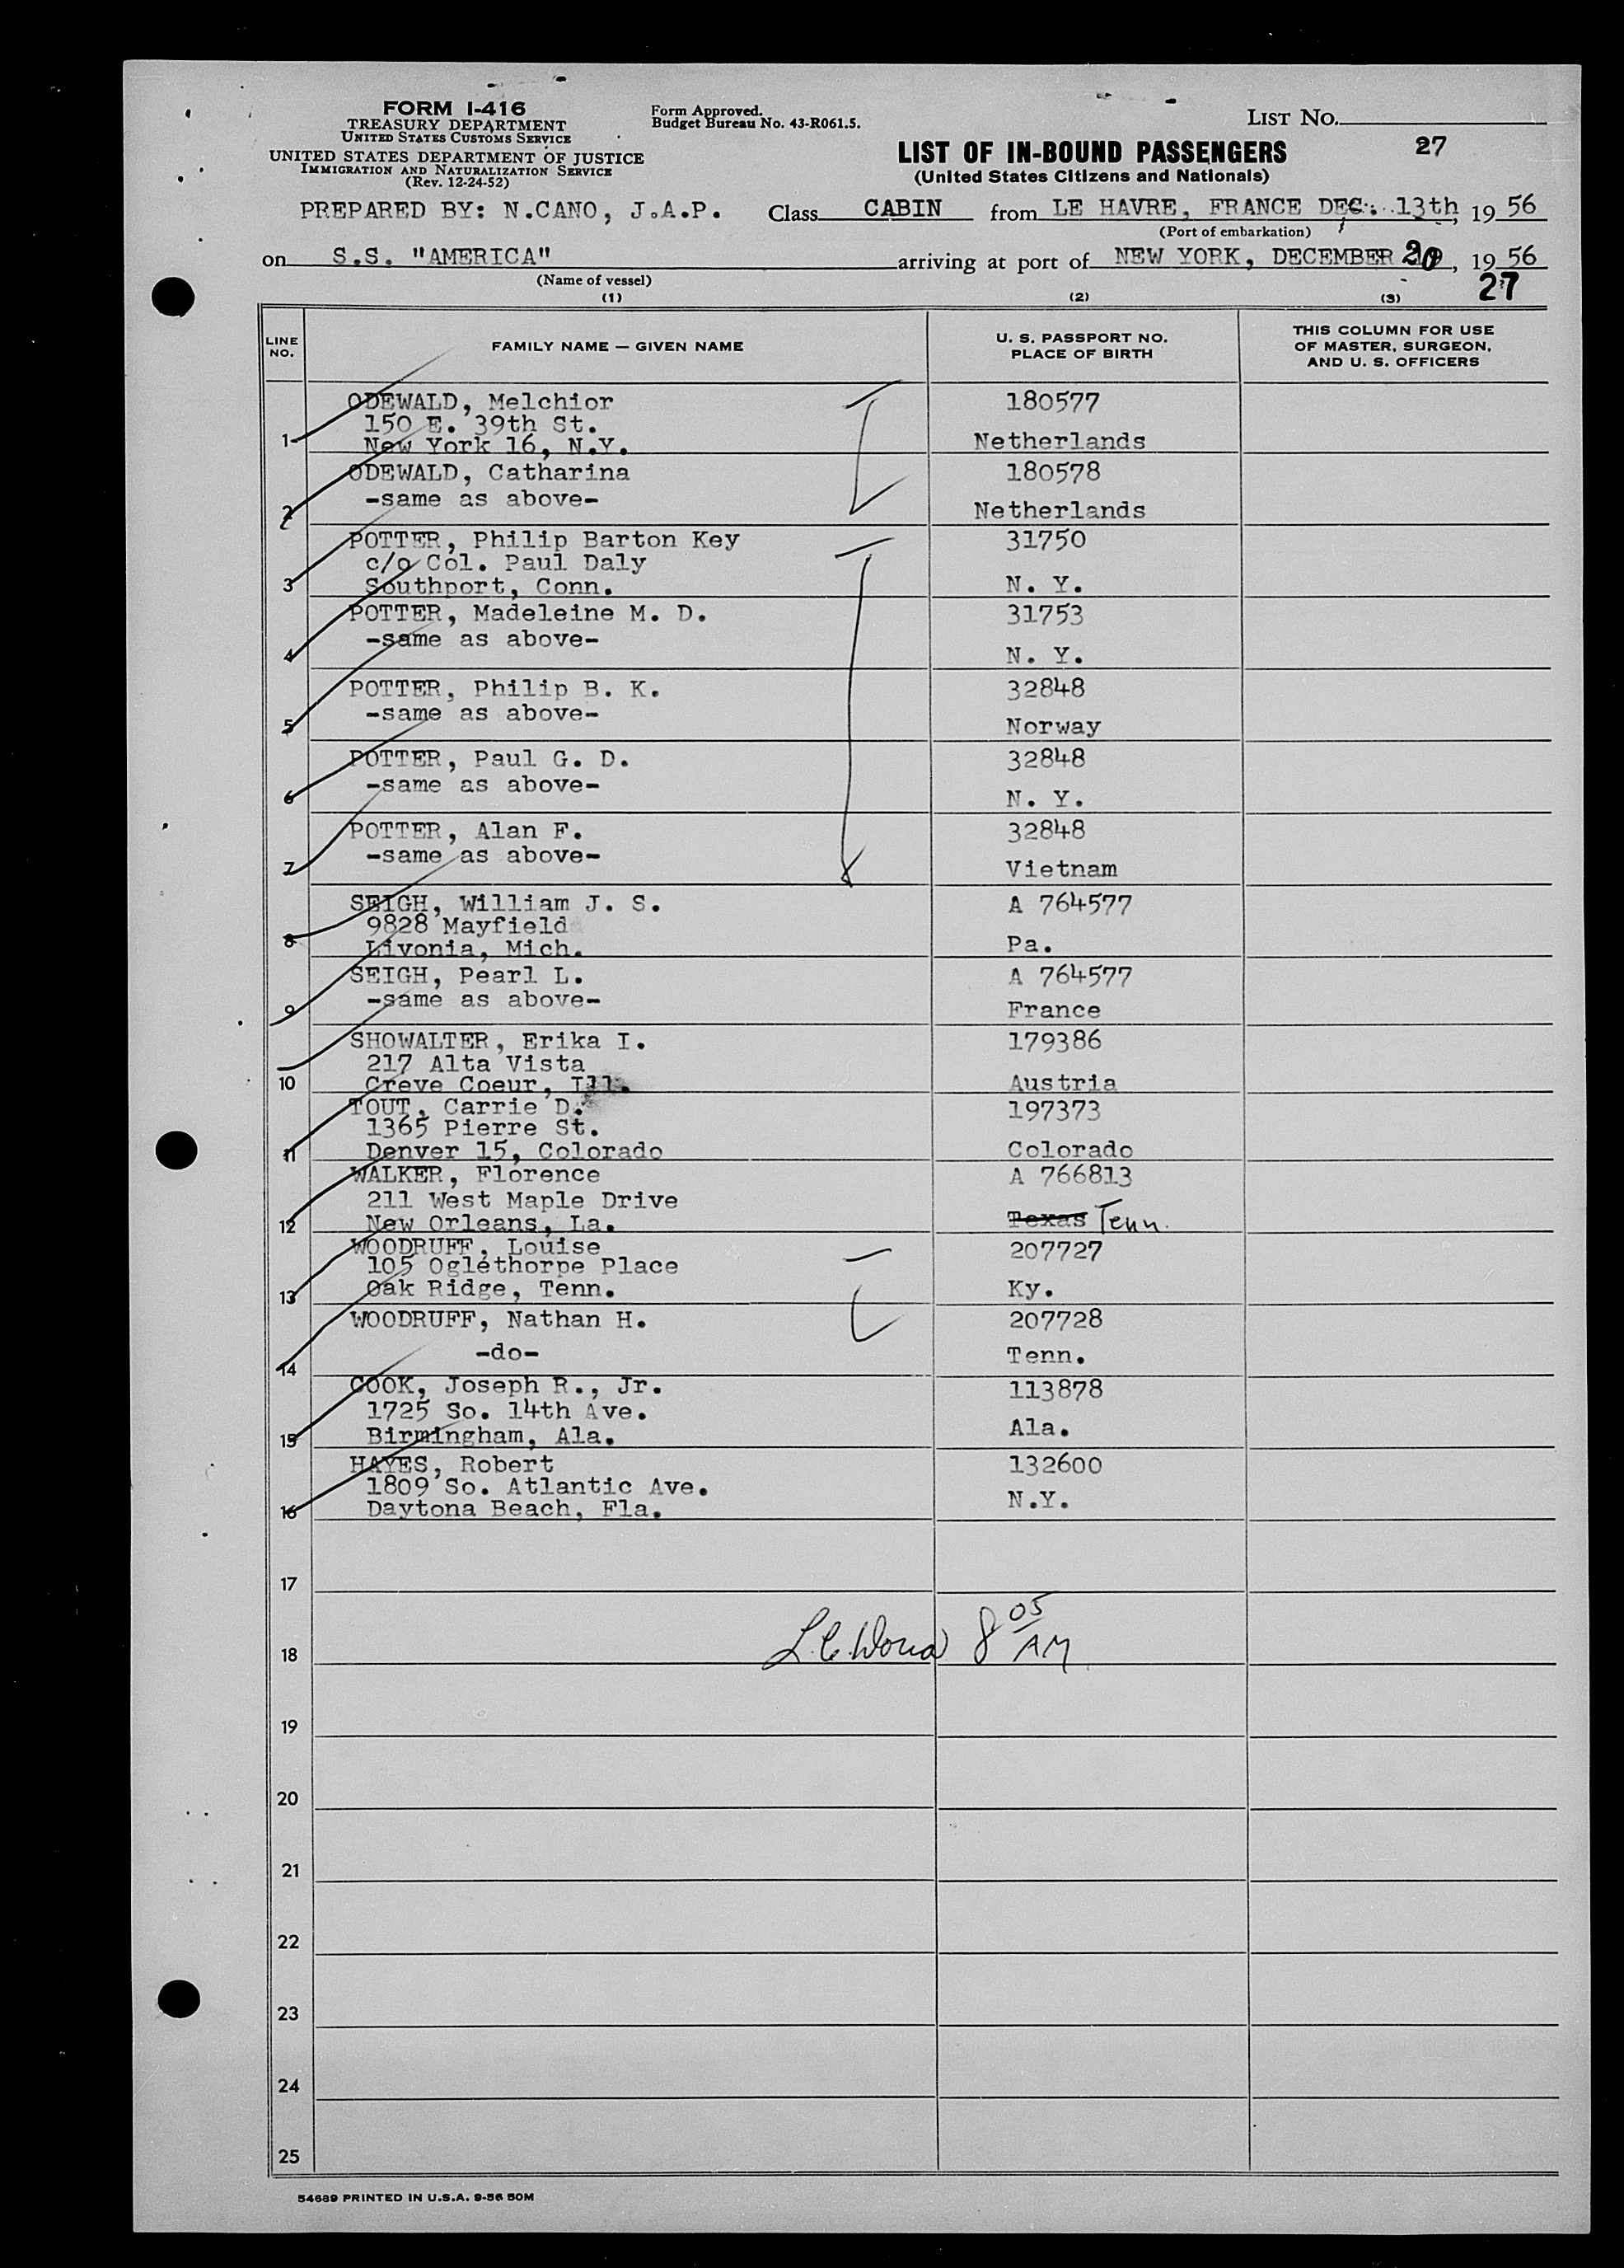 FORM I-416
TREASURY DEPARTMENT
UNITED STATES CUSTOMS SERVICE
UNITED STATES DEPARTMENT OF JUSTICE
IMMIGRATION AND NATURALIZATION SERVICE
(Rev. 12-24-52)
Form Approved.
Budget Bureau No. 43-R061.5.
LIST NO.
27
LIST OF IN-BOUND PASSENGERS
(United States Citizens and Nationals)
PREPARED BY: N.CANO, J.A.P. Class CABIN from LE HAVRE, FRANCE DEC. 13th, 19 56
(Port of embarkation)
on S.S. "AMERICA" arriving at port of NEW YORK, DECEMBER 20, 19 56
(Name of vessel)
27
(1) (2) (3)
LINE NO. FAMILY NAME — GIVEN NAME U. S. PASSPORT NO. PLACE OF BIRTH THIS COLUMN FOR USE OF MASTER, SURGEON, AND U. S. OFFICERS
ODEWALD, Melchior 180577
150 E. 39th St.
1 New York 16, N.Y. Netherlands
ODEWALD, Catharina 180578
-same as above-
2 Netherlands
POTTER, Philip Barton Key 31750
c/o Col. Paul Daly
3 Southport, Conn. N. Y.
POTTER, Madeleine M. D. 31753
-same as above-
4 N. Y.
POTTER, Philip B. K. 32848
-same as above-
5 Norway
POTTER, Paul G. D. 32848
-same as above-
6 N. Y.
POTTER, Alan F. 32848
-same as above-
7 Vietnam
SEIGH, William J. S. A 764577
9828 Mayfield
8 Livonia, Mich. Pa.
SEIGH, Pearl L. A 764577
-same as above-
9 France
SHOWALTER, Erika I. 179386
217 Alta Vista
10 Creve Coeur, Ill. Austria
TOUT, Carrie D. 197373
1365 Pierre St.
11 Denver 15, Colorado Colorado
WALKER, Florence A 766813
211 West Maple Drive
12 New Orleans, La. Texas Tenn.
WOODRUFF, Louise 207727
105 Oglethorpe Place
13 Oak Ridge, Tenn. Ky.
WOODRUFF, Nathan H. 207728
-do- Tenn.
14
COOK, Joseph R., Jr. 113878
1725 So. 14th Ave.
15 Birmingham, Ala. Ala.
HAYES, Robert 132600
1809 So. Atlantic Ave.
16 Daytona Beach, Fla. N.Y.
17
18 8 05 AM
19
20
21
22
23
24
25
54689 PRINTED IN U.S.A. 9-56 50M